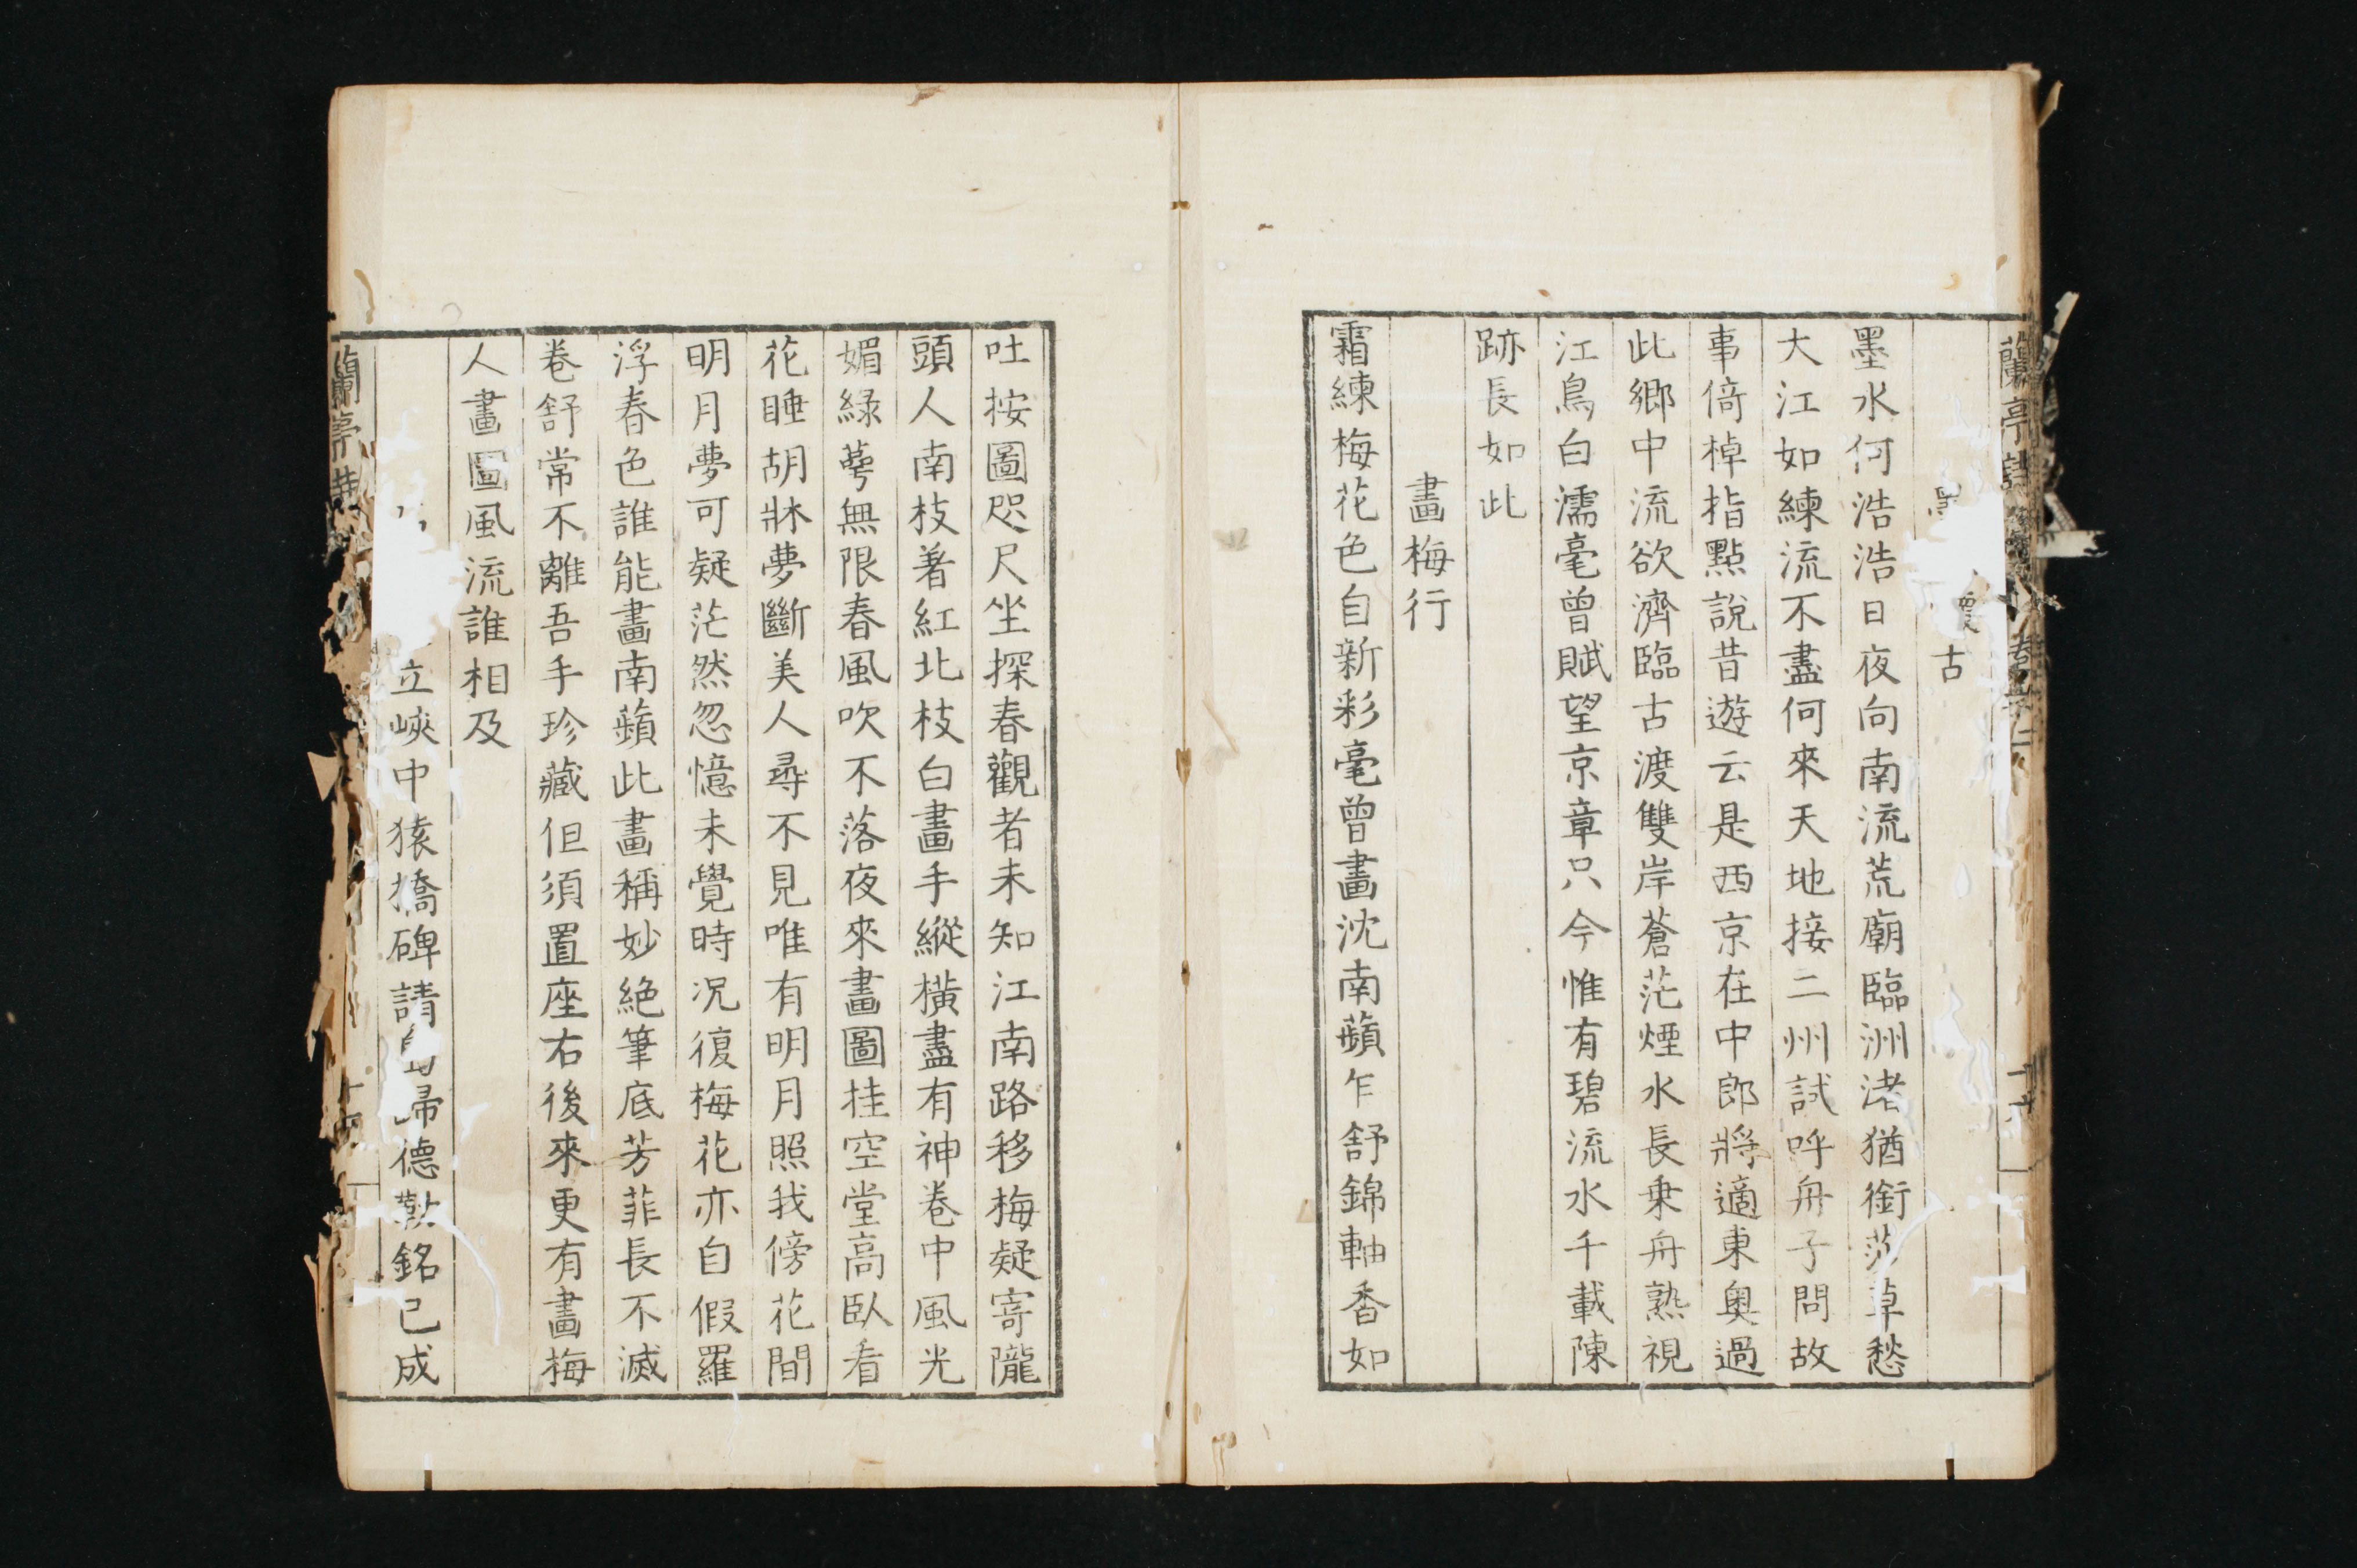 蘭亭
古
墨水何浩浩日夜向南流荒廟臨洲渚猶銜芳草愁
大江如練流不盡何來天地接二州試呼舟子問故
事倚棹指點說昔遊云是西京在中郎將適東奧過
此鄉中流欲濟臨古渡雙岸蒼茫煙水長乗舟熟視
江鳥白濡毫曾賦望京章只今惟有碧流水千載陳
跡長如此
畫梅行
霜練梅花色自新彩毫曾畫沈南蘋乍舒錦軸香如
吐按圖咫尺坐探春觀者未知江南路移梅疑寄隴
頭人南枝著紅北枝白畫手縱橫盡有神卷中風光
媚綠萼無限春風吹不落夜來畫圖挂空堂高臥看
花睡胡牀夢斷美人尋不見唯有明月照我傍花間
明月夢可疑茫然忽憶未覺時況復梅花亦自假羅
浮春色誰能畫南蘋此畫稱妙絕筆底芳菲長不滅
卷舒常不離吾手珍藏但須置座右後來更有畫梅
人畫圖風流誰相及
立峽中猿橋碑請歸德勒銘已成
蘭亭